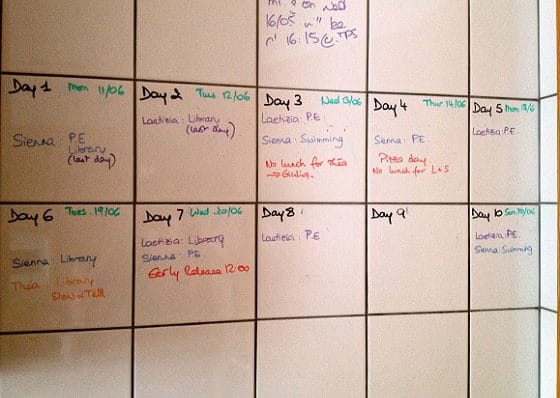 on Wed
16/05 be
16:15 @ TPS
Day 1 Mon 11/06
Sienna: P.E
Library
(last day)
Day 2 Tues 12/06
Laetizia: Library
(last day)
Day 3 Wed 13/06
Laetizia: P.E
Sienna: Swimming
No lunch for Thea
→ Giulia.
Day 4 Thur 14/06
Sienna: P.E.
Pizza day
No lunch for L+S
Day 5 Mon 18/6
Laetizia: P.E.
Day 6 Tues 19/06
Sienna: Library
Thea Library
Show & Tell
Day 7 Wed 20/06
Laetizia: Library
Sienna: P.E.
Early Release 12:00
Day 8
Laetizia: P.E
Day 9
Day 10
Laetizia: P.E.
Sienna: Swimming